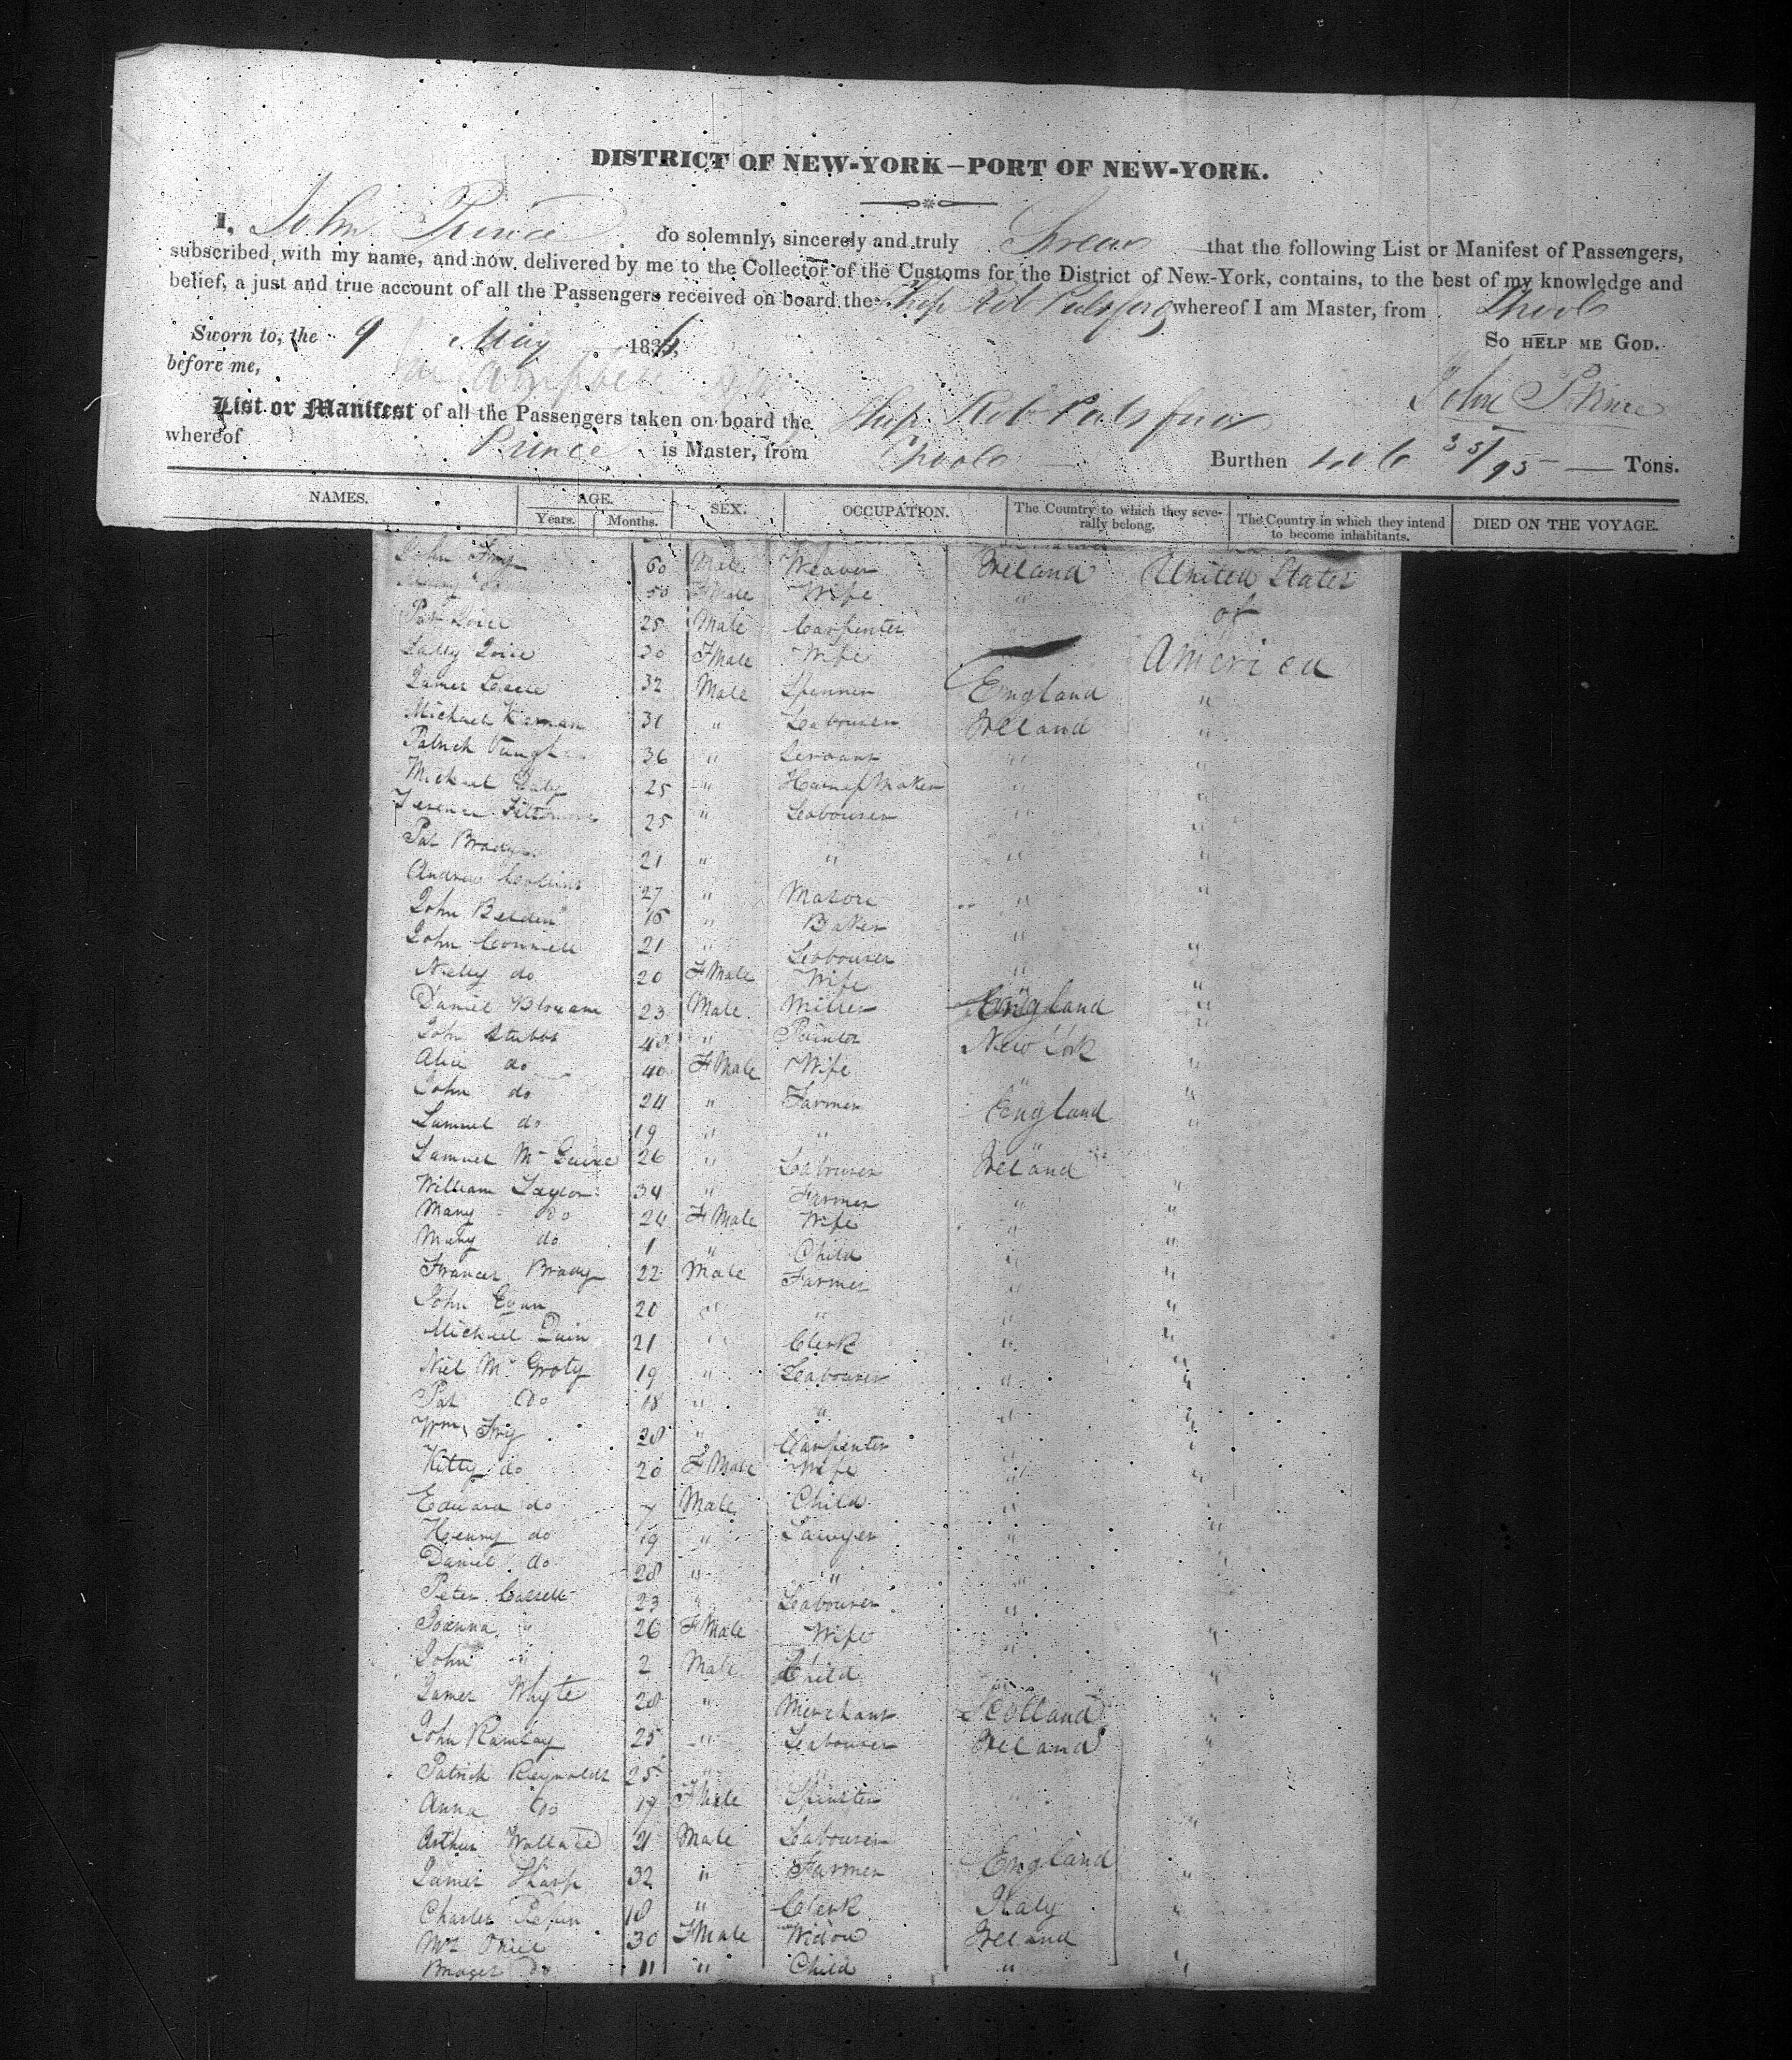 DISTRICT OF NEW-YORK—PORT OF NEW-YORK.
I, John Prince do solemnly, sincerely and truly Swear that the following List or Manifest of Passengers,
subscribed with my name, and now delivered by me to the Collector of the Customs for the District of New-York, contains, to the best of my knowledge and
belief, a just and true account of all the Passengers received on board the Ship whereof I am Master, from
Sworn to, the 9 May 183 So HELP ME GOD.
before me, John Prince
List or Manifest of all the Passengers taken on board the Ship
whereof Prince is Master, from Burthen 406 35/95 — Tons.
NAMES. AGE. SEX. OCCUPATION. The Country to which they severally belong. The Country in which they intend to become inhabitants. DIED ON THE VOYAGE.
Years. Months.
John Troy 60 Male Weaver Ireland United States
do 50 FMale Wife " of
Pat 25 Male Carpenter
30 FMale Wife America
James 32 Male Spinner England "
Michael Kernan 31 " Labourer Ireland "
Patrick 36 " Servant " "
Michael Daly 25 " Harness Maker " "
25 " Labourer " "
Pat Brady 21 " " " "
Andrew 27 " Mason " "
John 16 " Baker "
John Connell 21 " Labourer " "
Nelly do 20 FMale Wife " "
Daniel 23 Male Miller England "
John Stubbs 40 " Painter New York "
Alice do 40 FMale Wife " "
John do 24 " Farmer England "
Samuel do 19 " " " "
Samuel McGuire 26 " Labourer Ireland
William Taylor 34 " Farmer " "
Mary do 24 FMale Wife " "
Mary do 1 " Child " "
Frances Brady 22 Male Farmer " "
John Egan 20 " " " "
Michael Quin 21 " Clerk " "
Niel McGroty 19 " Labourer " "
Pat do 18 " " " "
Wm Troy 28 " Carpenter " "
Kitty do 20 FMale Wife "
Edward do 7 Male Child " "
Henry do 19 " Sawyer " "
Daniel do 28 " " "
Peter 23 " Labourer "
Joanna " 26 FMale Wife " "
John " 2 Male Child "
James Whyte 28 " Merchant Scotland "
John Ramsay 25 " Labourer Ireland "
Patrick Reynolds 25 " "
Anna do 19 FMale Spinster "
Arthur Wallace 21 Male Labourer "
James Sharp 32 " Farmer England "
Charles 18 " Clerk Italy "
Mrs 30 FMale Widow Ireland
do 11 " Child " "